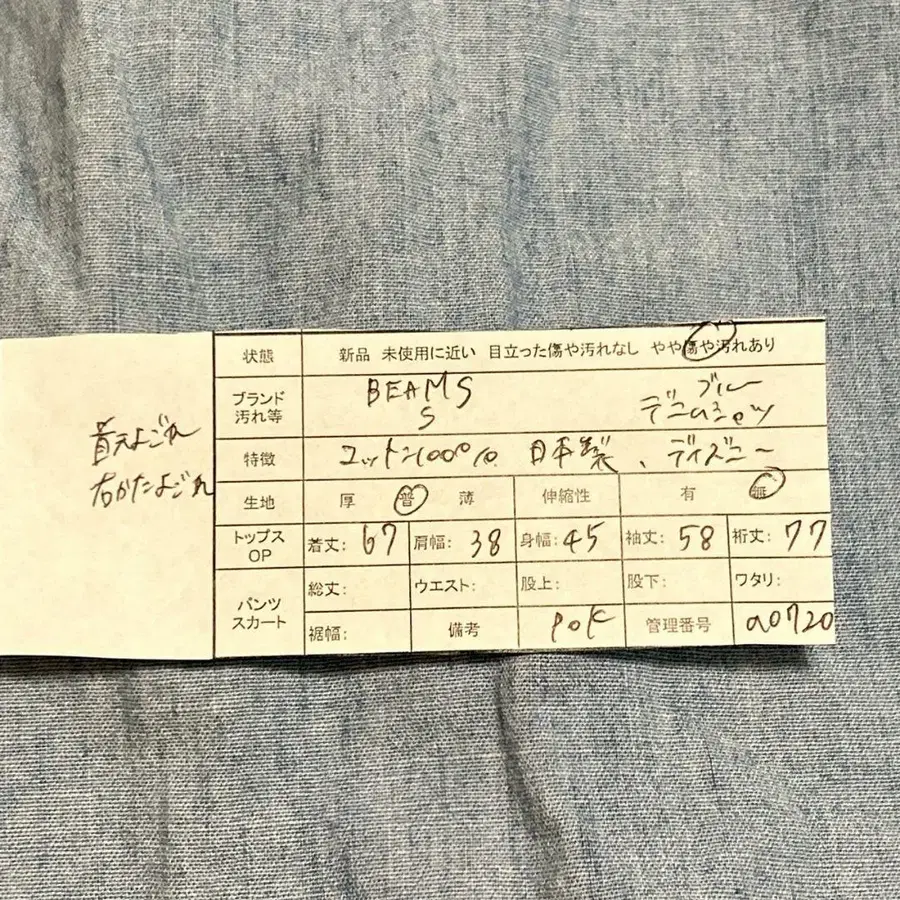 首元よごれ
右かたよごれ
状態 新品 未使用に近い 目立った傷や汚れなし やや傷や汚れあり
ブランド 汚れ等 BEAMS S ブルー デニムシャツ
特徴 コットン100% 日本製、ディズニー
生地 厚 普 薄 伸縮性 有 無
トップス OP 着丈: 67 肩幅: 38 身幅: 45 袖丈: 58 裄丈: 77
パンツ スカート 総丈: ウエスト: 股上: 股下: ワタリ:
裾幅: 備考 管理番号 a0720